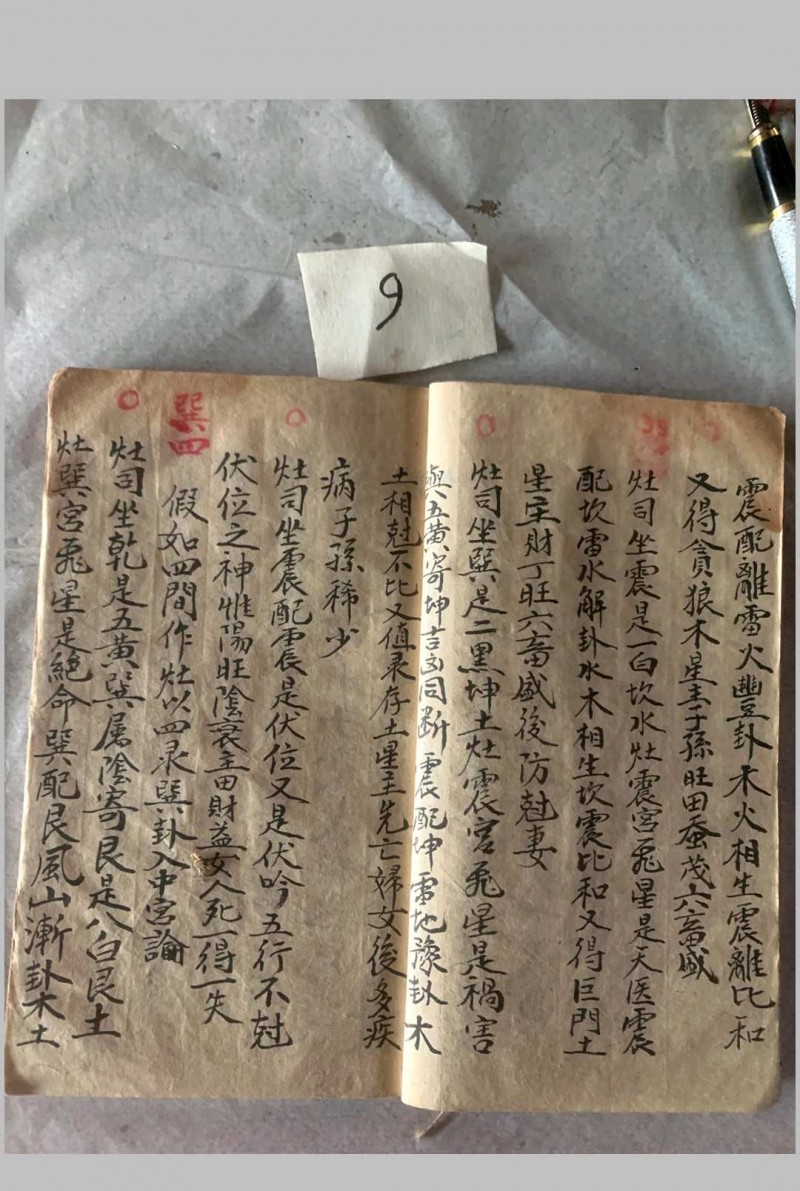 9
震配離雷火豐卦木火相生震離比和
又得貪狼木星主子孫旺田蚕茂六畜盛
灶司坐震是一白坎水灶震宮飛星是天医震
配坎雷水解卦水木相生坎震比和又得巨門土
星主財丁旺六畜盛後防尅妻
灶司坐巽是二黑坤土灶震宮飛星是禍害
與五黃寄坤吉凶同断震配坤雷地豫卦木
土相尅不比又值录存土星主先亡婦女後多疾
病子孫稀少
灶司坐震配震是伏位又是伏吟五行不尅
伏位之神惟陽旺陰衰主田財益女人死一得一失
巽四
假如四間作灶以四录巽卦入中宮論
灶司坐乾是五黃巽属陰寄艮是八白艮土
灶巽宮飛星是絕命巽配艮風山漸卦木土